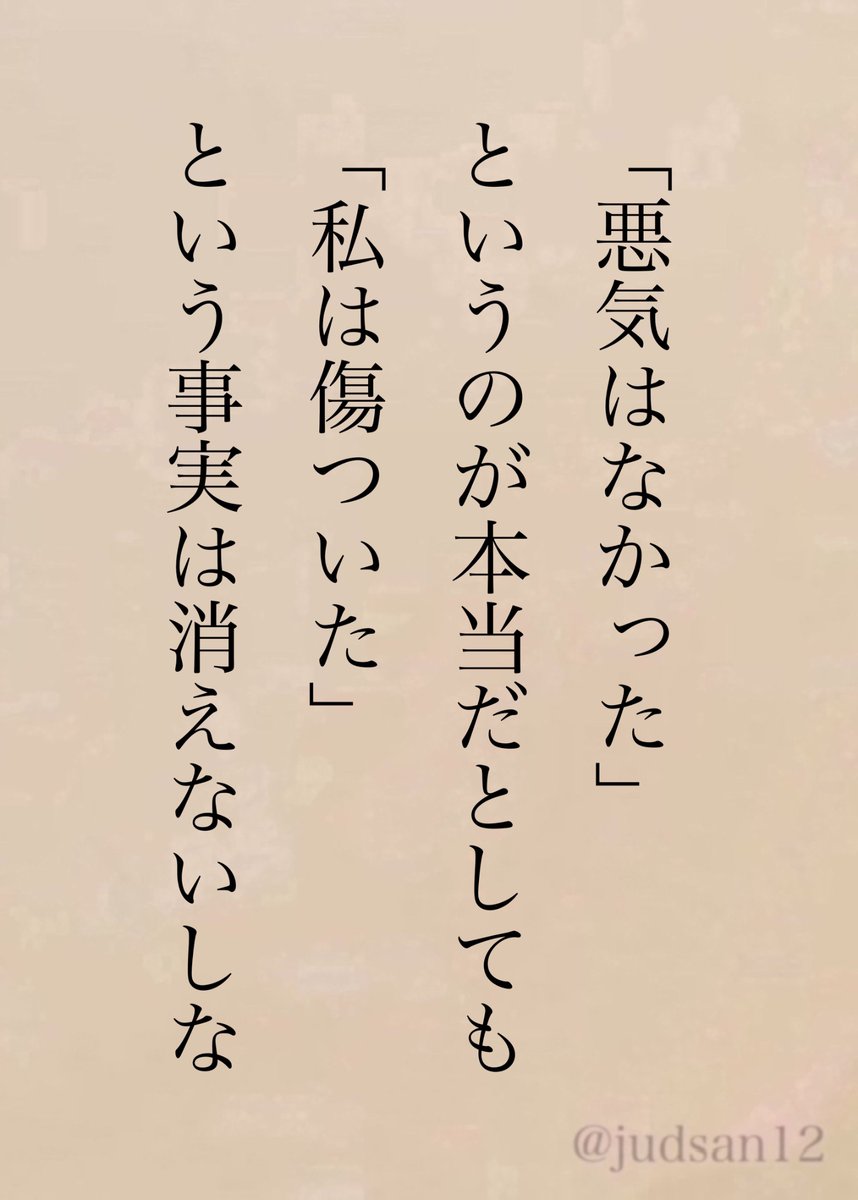 「悪気はなかった」
というのが本当だとしても
「私は傷ついた」
という事実は消えないしな
@judsan12